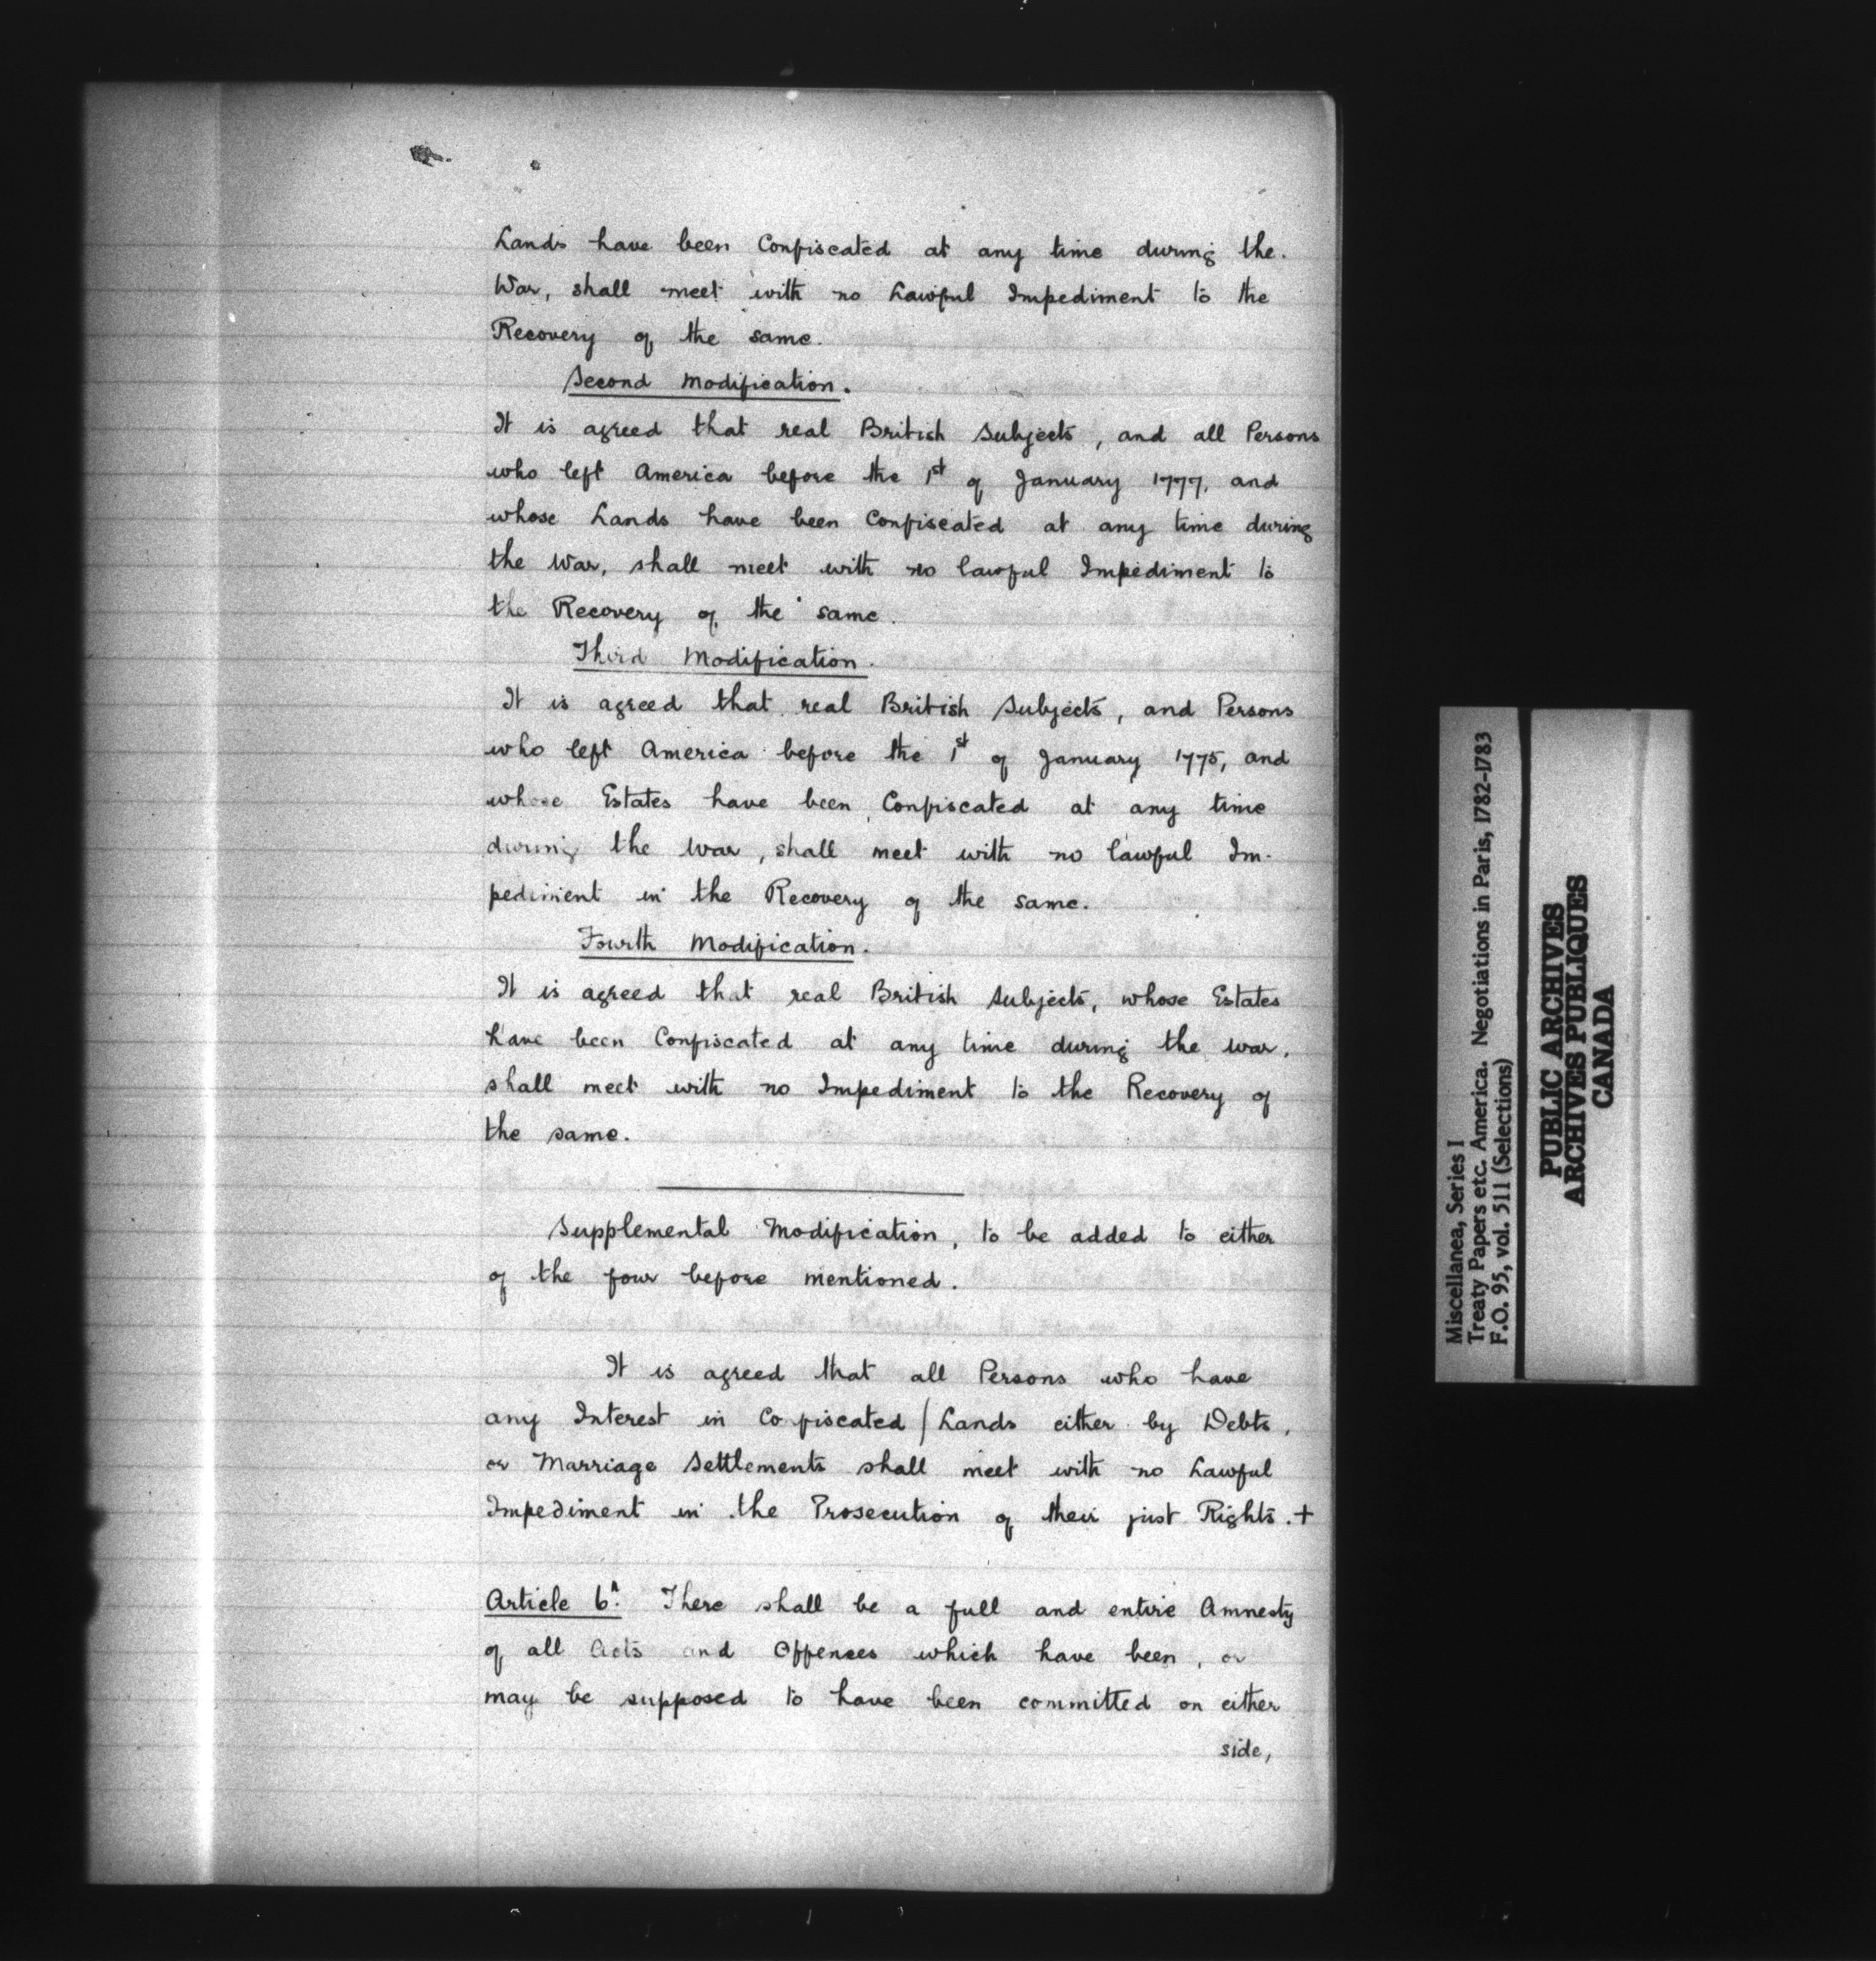 Lands have been Confiscated at any time during the.
War, shall meet with no Lawful Impediment to the
Recovery of the same.
Second Modification.
It is agreed that real British Subjects, and all Persons
who left America before the 1st of January 1777, and
whose Lands have been Confiscated at any time during
the War, shall meet with no lawful Impediment to
the Recovery of the same.
Third Modification.
It is agreed that real British Subjects, and Persons
who left America before the 1st of January 1775, and
whose Estates have been Confiscated at any time
during the War, shall meet with no lawful Im-
pediment in the Recovery of the same.
Fourth Modification.
It is agreed that real British Subjects, whose Estates
have been Confiscated at any time during the war,
shall meet with no Impediment to the Recovery of
the same.
Supplemental Modification, to be added to either
of the four before mentioned.
It is agreed that all Persons who have
any Interest in Confiscated / Lands either by Debts,
or Marriage Settlements shall meet with no Lawful
Impediment in the Prosecution of their just Rights.+
Article 6. There shall be a full and entire Amnesty
of all Acts and Offences which have been, or
may be supposed to have been committed on either
side,
Miscellanea, Series I
Treaty Papers etc. America. Negotiations in Paris, 1782-1783
F.O. 95, vol. 511 (Selections)
PUBLIC ARCHIVES
ARCHIVES PUBLIQUES
CANADA